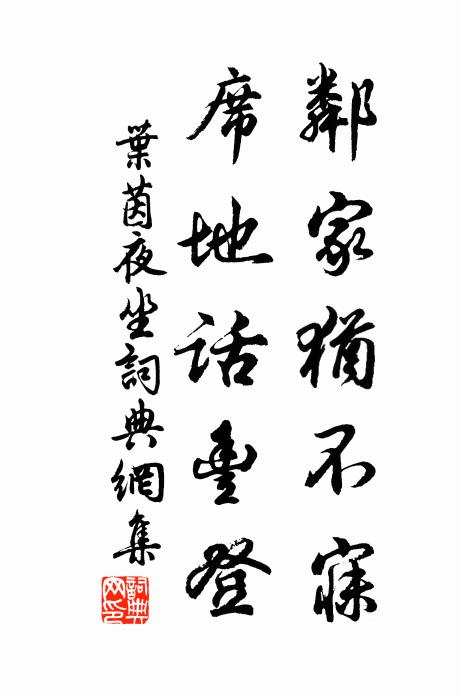 鄰家猶不寐
席地話豐登
葉茵夜坐詞典網集
詞典網印